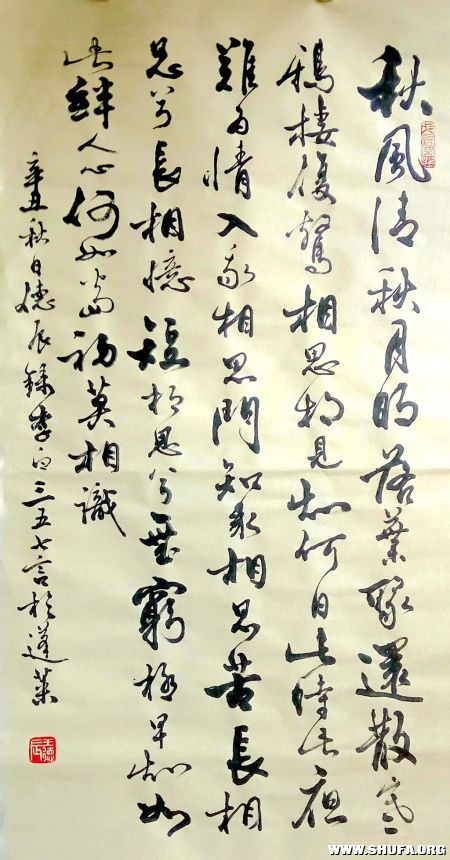 秋風清秋月明落葉聚還散寒
鴉棲復驚相思相見知何日此時此夜
難為情入我相思門知我相思苦長相
思兮長相憶短相思兮無窮極早知如
此絆人心何如當初莫相識
辛丑秋日德辰錄李白三五七言於蓬萊
WWW.SHUFA.ORG